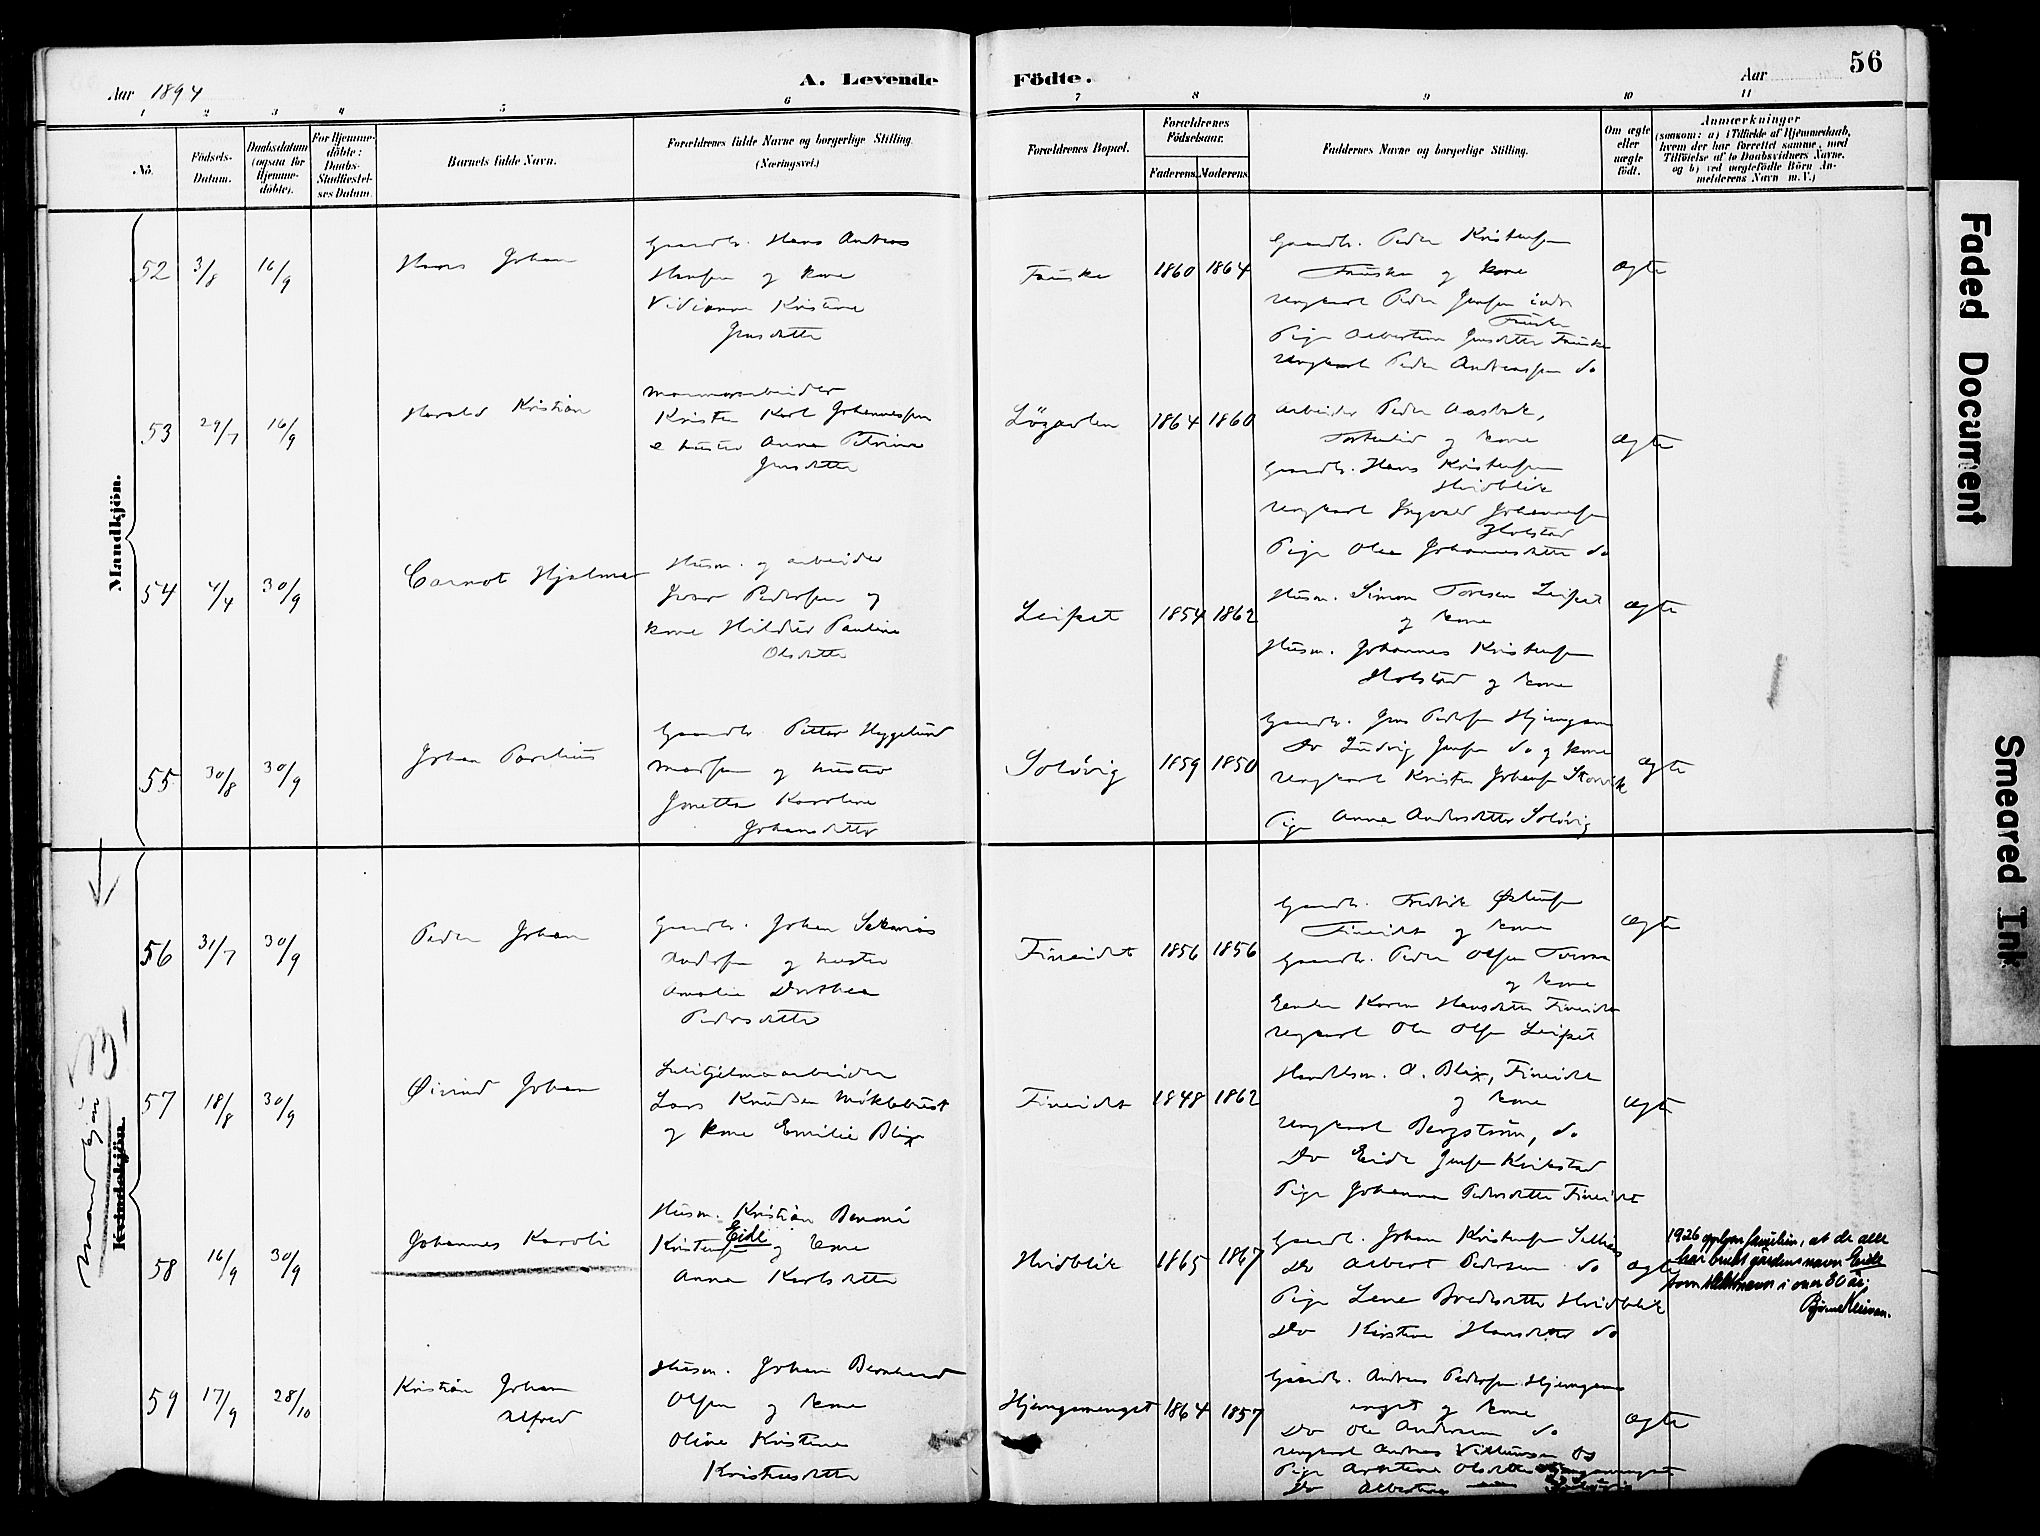 Aar 1894
A. Levende
Födte.
Aar
56
1 2 3 4 5 6 7 8 9 10 11
No.
Födsels-
Datum.
Daabsdatum
(ogsaa for
Hjemme-
döbte).
For Hjemme-
döbte:
Daabs-
Stadfæstel-
ses Datum.
Barnets fulde Navn.
Forældrenes fulde Navne og borgerlige Stilling.
(Næringsvei.)
Forældrenes Bopæl.
Forældrenes
Födselsaar.
Faderens. Moderens.
Faddernes Navne og borgerlige Stilling.
Om ægte
eller
uægte
födt.
Anmærkninger
(saasom: a) i Tilfælde af Hjemmedaab,
hvem der har forrettet samme, med
Tilföielse af to Daabsvidners Navne,
og b) ved uægtefödte Börn An-
melderens Navn m. V.)
Mandkjön.
52 3/8 16/9
Hans Johan
Gaardb. Hans Andreas
Hansen og kone
Vidianna Kristine
Jensdatter
Fauske
1860 1864
Gaardb. Peder Kristensen
Fauske og kone
Ungkarl Peder Jensen indr
Fauske
Pige Albertine Jensdatter Fauske
Ungkarl Peder Andreassen do
ægte
53 29/7 16/9
Harald Kristian
Marmorarbeider
Kristen Karl Johannessen
e hustru Anna Petrine
Jensdatter
Løgavlen
1864 1860
Arbeider Peder Aasbak,
og kone
Gaardb. Hans Kristensen
Hvidblik
Ungkarl Ingvald Johannesen
Holstad
Pige Olea Johannesdatter do
ægte
54 4/4 30/9
Carnot Hjalmar
Husm. og arbeider
Ivar Pedersen og
kone Hildur Pauline
Olsdatter
Leifset
1854 1862
Husm. Simon Toresen Leifset
og kone
Husm. Johannes Kristensen
Holstad og kone
ægte
55 30/8 30/9
Johan Parelius
Gaardb. Petter Hyggelund
Madsen og hustru
Jonetta Karoline
Johansdatter
Soløvig
1859 1850
Gaardb. Jens Pedersen Hjemgam
Do Ludvig Jensen do og kone
Ungkarl Kristen Johansen Storvik
Pige Anna Andersdatter Soløvig
ægte
Mandkjøn
Kvindekjön.
56 31/7 30/9
Peder Johan
Gaardb. Johan Sakarias
Andersen og hustru
Amalie Dorthea
Pedersdatter
Finneidet
1856 1856
Gaardb. Fredrik Østensen
Finneidet og kone
Gaardb. Peder Olsen Tveraa
og kone
Enken Karen Hansdatter Finneidet
Ungkarl Ole Olsen Leifset
ægte
57 18/8 30/9
Øivind Johan
Sulitjelmaarbeider
Lars Knudsen Møklebust
og kone Emilie Blix
Finneidet
1848 1862
Handelsm. A. Blix, Finneidet
og kone
Ungkarl Bergstrøm, do
Do Eide Jensen Kvikstad
Pige Johanna Pedersdatter Finneidet
ægte
58 16/9 30/9
Johannes Karoli
Husm. Kristian Benoni
Kristensen Eide og kone
Anna Karlsdatter
Hvidblik
1865 1867
Gaardb. Johan Kristensen
Do Albert Pedersen do
Pige Lene Bredesdatter Hvidblik
Do Kirstine Hansdatter do
ægte
1926 oplyser familien, at de alle
har brukt gårdens navn Eide
som slektsnavn i over 30 år.
59 17/9 28/10
Kristian Johan
Alfred
Husm. Johan Bernhard
Olsen og kone
Oline Kristine
Kristensdatter
Hjemgamenget
1864 1857
Gaardb. Andreas Pedersen Hjemgams
enget og kone
Do Ole Andersen do
Ungkarl Andreas Villumsen
Pige Olsdatter
Do Albertine
ægte
Faded Document
Smeared Ink